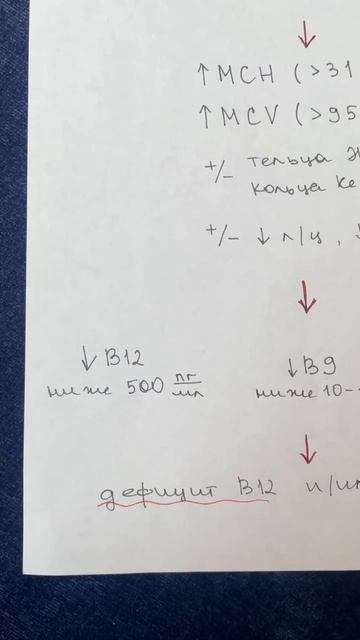 ↑ MCH (>31
↑ MCV (>95
+/- тельца Ж
кольца Ке
+/- ↓ л/ц, ↓
↓ B12
ниже 500 пг/мл
↓ B9
ниже 10-
дефицит B12 и/ил